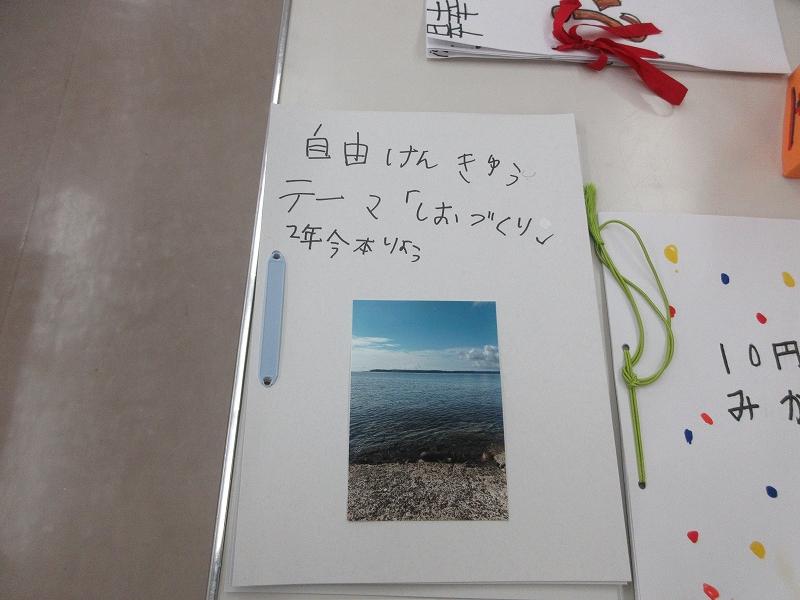 自由けんきゅう
テーマ「しおづくり」
2年今本りょう
10円
みが